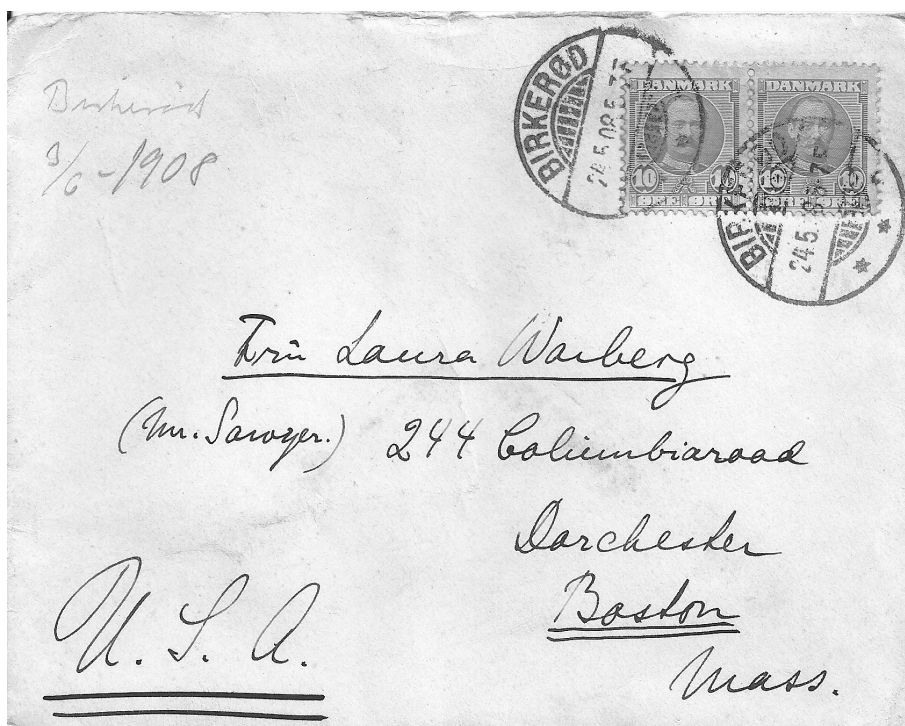 Birkeröd
3/6-1908
BIRKERØD
24.5.08.5
DANMARK
10 10
ØRE ØRE
DANMARK
10 10
ØRE ØRE
24.5.
Fru Laura Warberg
(Mr. Sawyer.) 244 Columbiaroad
Dorchester
Boston
Mass.
U. S. A.